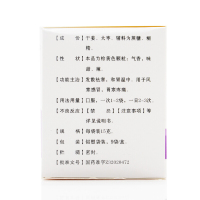 【成 份】 干姜、大枣。辅料为蔗糖、糊精。
【性 状】 本品为棕黄色颗粒；气香，味甜、辣。
【功能主治】 发散祛寒，和胃温中。用于风寒感冒，胃寒疼痛。
【用法用量】 口服，一次1~2袋，一日2~3次。
【不良反应】【禁忌】【注意事项】等
详见说明书。
【规 格】 每袋装15克
【包 装】
【贮 藏】 密封。
【批准文号】